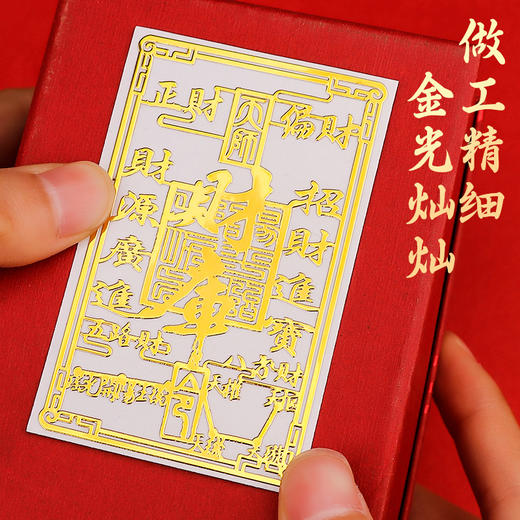 做工精细
金光灿灿
正財
天師
偏財
財源廣進
招財進寶
財庫
五路財
八方財
天權